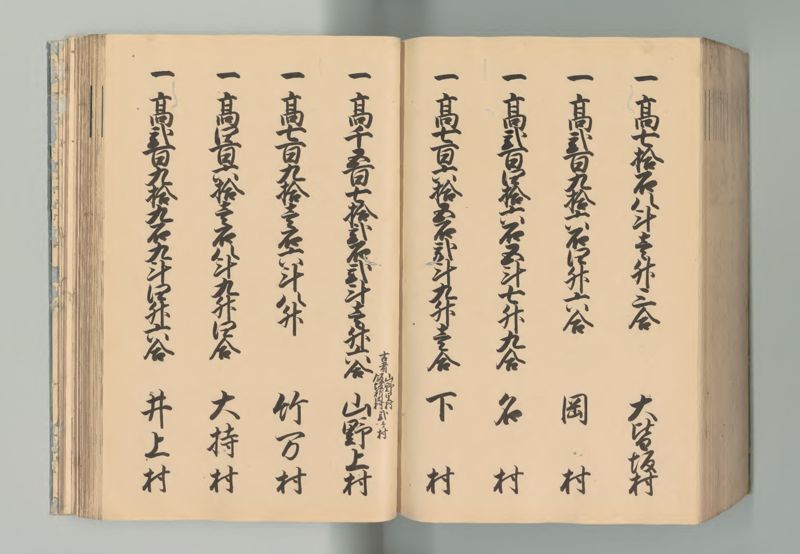 一 高七拾石八斗壱升三合 大皆坂村
一 高弐百九拾六石四升六合 岡村
一 高弐百四拾六石五斗七升九合 名村
一 高七百六拾五石弐斗九升壱合 下村
一 高千五百七拾弐石弐斗壱升六合 山野上村
古者山野里村
弐ヶ村
一 高七百九拾壱石六斗八升 竹万村
一 高四百六拾壱石八斗九升四合 大持村
一 高弐百九拾九石九斗四升六合 井上村